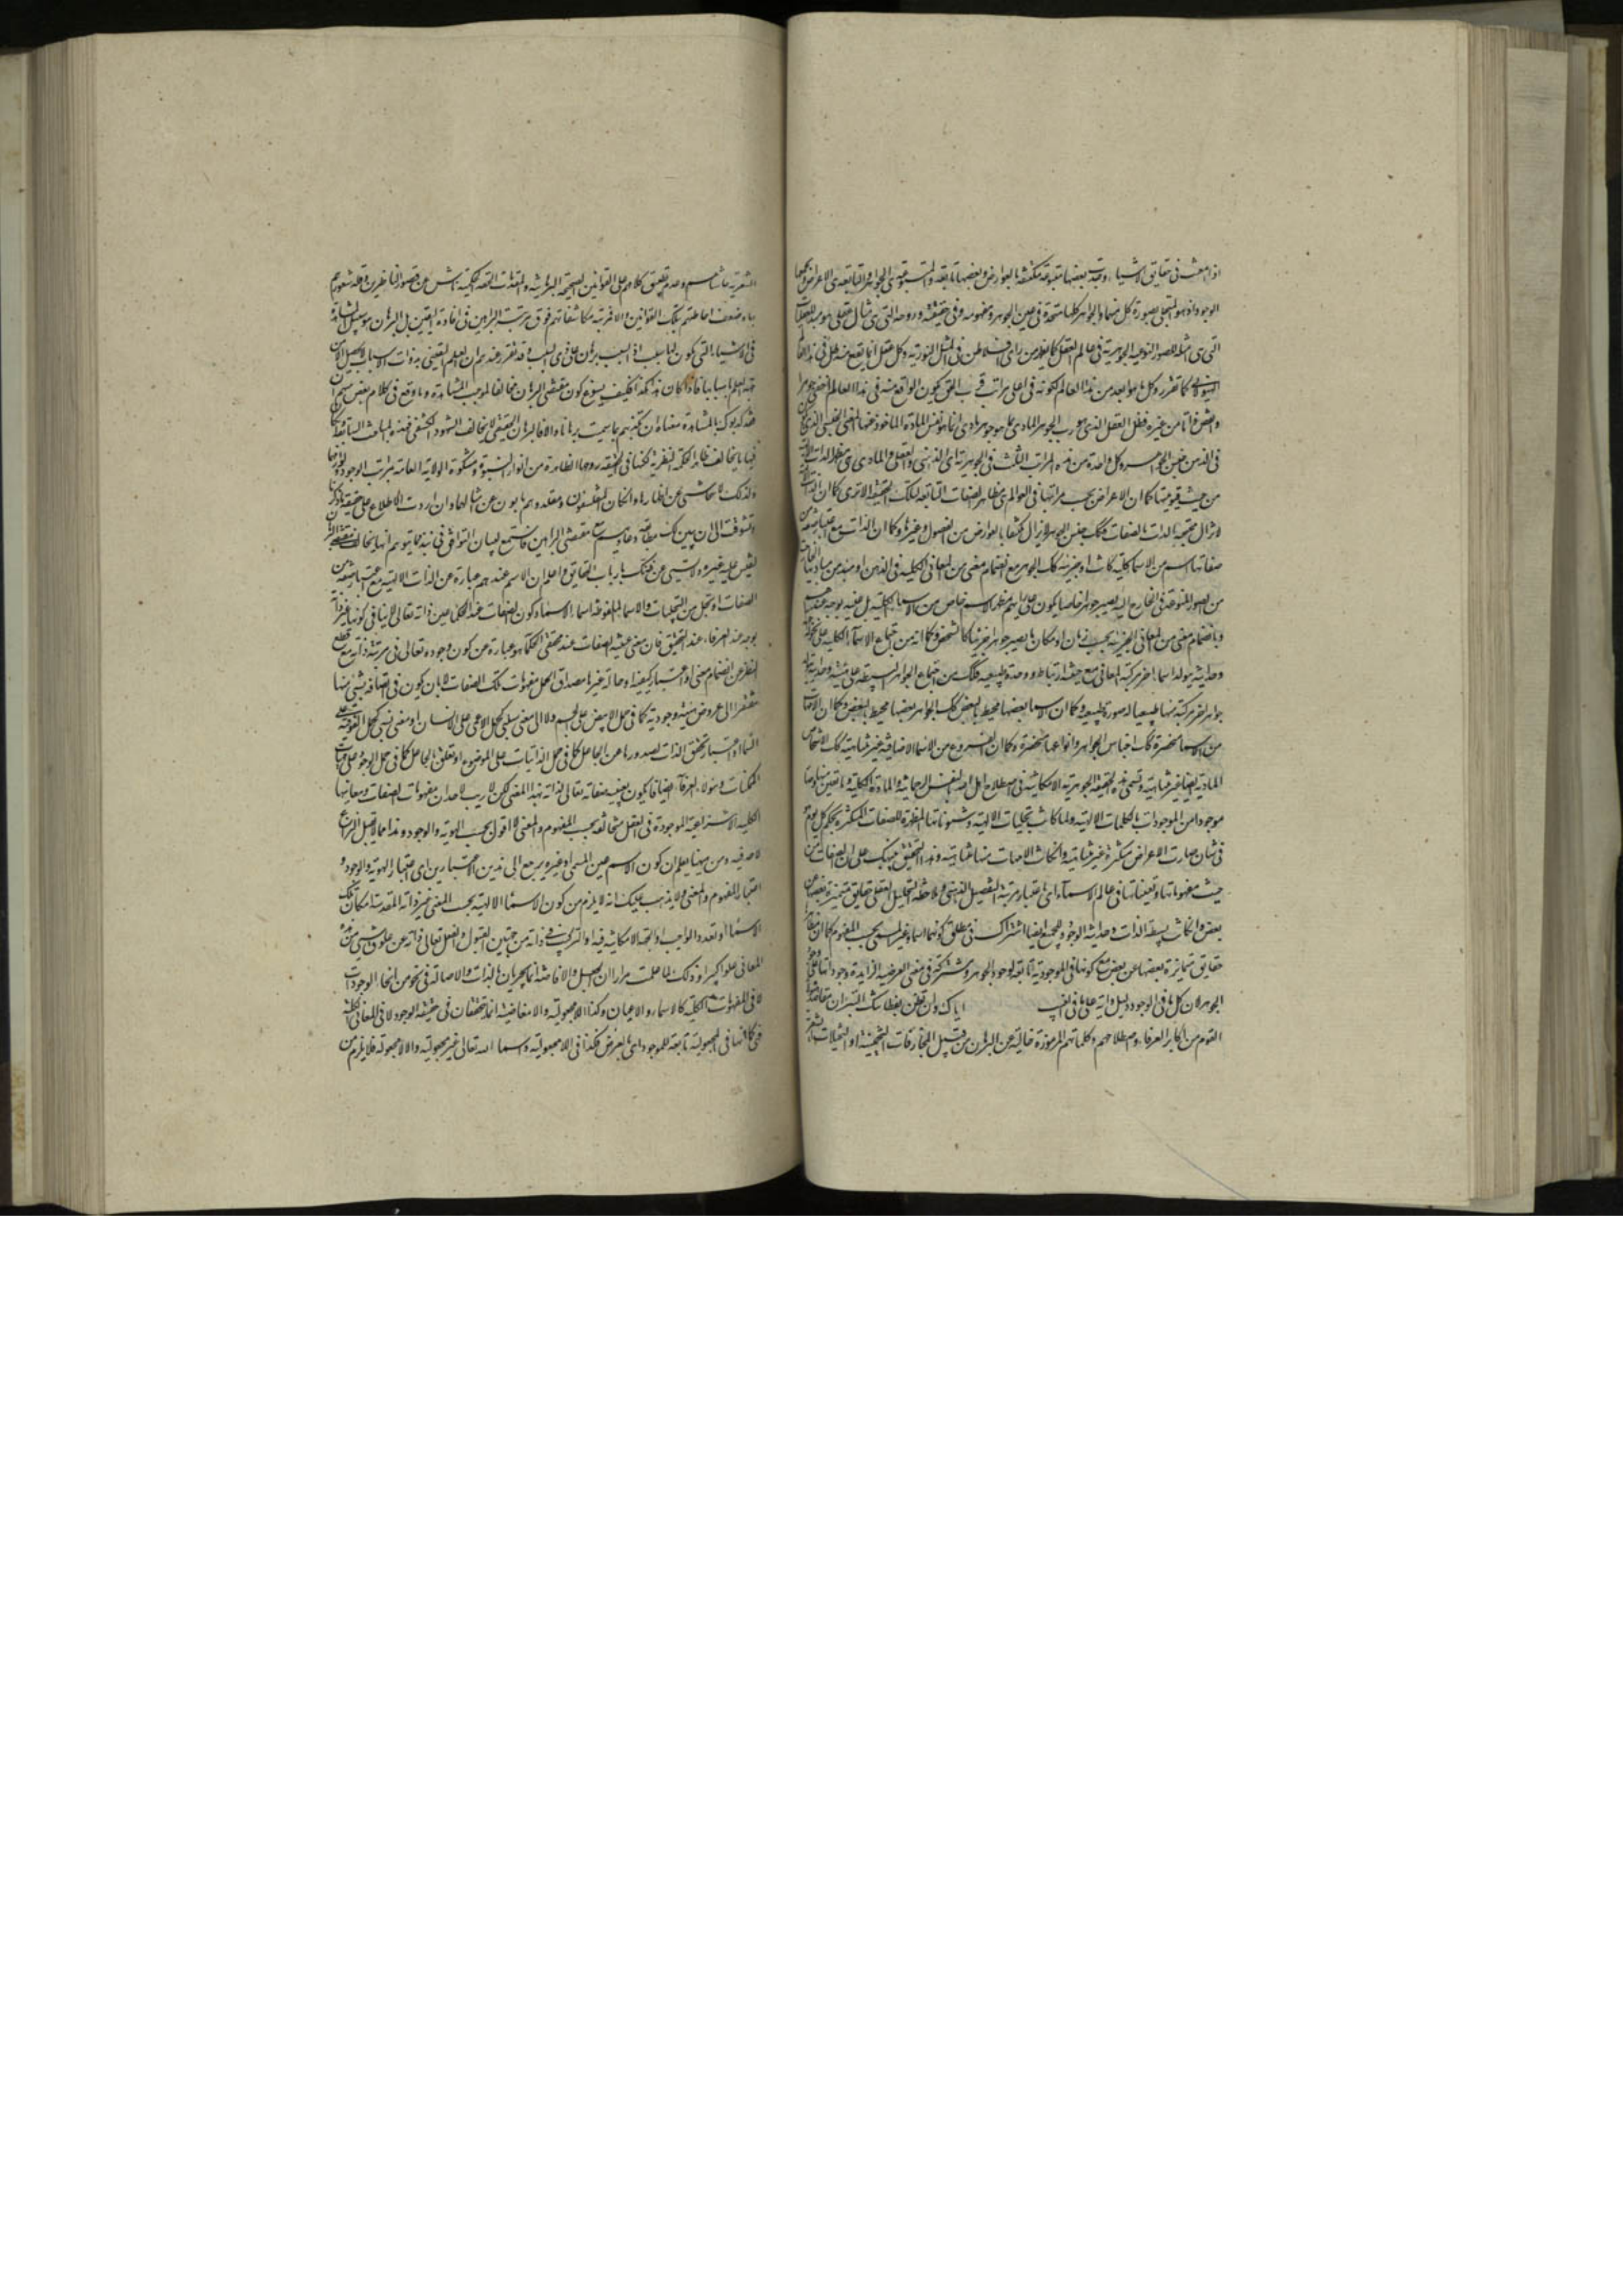 اذا امعنت في حقايق الاشياء وجدت بعضها متبوعة مكتنفة بالعوارض وبعضها تابعة والمتبوعة هي الجواهر والتابعة هي الاعراض ويجمعهما
الوجود اذ هو المتجلي بصورة كل منهما والجواهر كلها متحدة في عين الجوهر ومفهومه وفي حقيقته وروحه التي هي مثال عقلي هو مبدء للعقليات
التي هي امثلة للصور النوعية الجوهرية في عالم العقل كما يفهم من راى افلاطن في المثل النورية وكل عقل انما يقع منه ظل في هذا العالم
الهيولاني كما تقرر وكل ما هو ابعد من هذا العالم لكونه في اعلى مراتب قرب الحق يكون الواقع منه في هذا العالم اخفى جوهرا
وانقص ذاتا من غيره فظل العقل الذي هو رب الجوهر المادي بما هو جوهر مادي انما هو نفس المادة الماخوذ عنها المعنى الجنسي الذي يكون
في الذهن جنس الجواهر وكل واحدة من هذه المراتب الثلث في الجوهرية اي الذهني والعقلي والمادي هي مظهر الذات الالهية
من حيث قيوميتها كما ان الاعراض بحسب مراتبها في العوالم هي مظاهر الصفات التابعة لتلك الحقيقة الا ترى كما ان الذات الالهية
لا تزال محتجبة بالصفات فكذلك جنس الجوهر لا يزال مكتنفا بالعوارض من الفصول وغيرها وكما ان الذات مع اعتبار صفة من
صفاتها اسم من الاسماء كلية كانت او جزئية كذلك الجوهر مع انضمام معنى من المعاني الكلية في الذهن او مبدء من مباديها
من الصور المنوعة في الخارج اليه يصير جوهرا خاصا يكون على رايهم مظهر الاسم خاص من الاسماء الكلية بل عينه بوجه عندهم
وبانضمام معنى من المعاني الجزئية بحسب زمان او مكان ما يصير جوهرا جزئيا كالشخص وكما انه من اجتماع الاسماء الكلية على نحو
وحداني يتولد اسماء اخر مركبة المعاني مع حيثية ارتباط ووحدة طبيعية فكذلك من اجتماع الجواهر البسيطة على هيئة وحدانية
جواهر اخر مركبة منها طبيعيا له صورة طبيعية وكما ان الاسماء بعضها محيط بالبعض كذلك الجواهر بعضها محيط بالبعض وكما ان الامهات
من الاسماء منحصرة كذلك اجناس الجواهر وانواعها منحصرة وكما ان الفروع من الاسماء الاضافية غير متناهية كذلك الاشخاص
المادية ايضا غير متناهية وتسمى هذه الحقيقة الجوهرية الامكانية في اصطلاح اهل الله بالنفس الرحماني والمادة الكلية وما تعين منها وصار
موجودا من الموجودات بالكلمات الالهية ولما كانت تجليات الالهية وشئوناتها المظهرة للصفات المتكثرة بحكم كل يوم هو
في شان صارت الاعراض متكثرة غير متناهية وان كانت الامهات منها متناهية وهذا التحقيق ينبهك على ان الصفات من
حيث مفهوماتها وتعيناتها في عالم الاسماء اى باعتبار مرتبة التفصيل الذهني وملاحظة التحليل العقلي حقايق متميزة بعضها عن
بعض وان كانت بسيطة الذات وحدانية الوجود وللجميع ايضا اشتراك في مطلق كونها اسماء وغير المسمى بحسب المفهوم كما ان مظاهرها
حقايق متمايزة بعضها عن بعض مع كونها في الموجودية تابعة لوجود الجوهر ومشتركة في معنى العرضية الزائدة وجوداتها على وجود
الجوهر لان كل ما في الوجود دليل واية على ما في الغيب اياك وان تظن بفطانتك البتراء ان مقاصد هؤلاء
القوم من اكابر العرفاء واصطلاحاتهم وكلماتهم المرموزة خالية عن البرهان من قبيل المجازفات التخمينية او التخيلات
الشعرية حاشاهم وعدم تطبيق كلامهم على القوانين الصحيحة البرهانية والمقدمات الحقة الحكمية ناش عن قصور الناظرين وقلة شعورهم
بها وضعف احاطتهم بتلك القوانين والا فمرتبة مكاشفاتهم فوق مرتبة البراهين في افادة اليقين بل البرهان هو سبيل المشاهدة
في الاشياء التي يكون لها سبب اذ السبب برهان على ذي السبب وقد تقرر عندهم ان العلم اليقيني بذوات الاسباب لا يحصل الا من
جهة العلم باسبابها فاذا كان هذا هكذا فكيف يسوغ كون مقتضى البرهان مخالفا لموجب المشاهدة وما وقع في كلام بعض منهم ان
تكذبهم بالبرهان فقد كذبوك بالمشاهدة معناه ان تكذبهم بما سميت برهانا والا فالبرهان الحقيقي لا يخالف الشهود الكشفي فهذه المباحث السابقة وان كان
فيها ما يخالف ظاهر الحكمة النظرية لكنها في الحقيقة روحها الظاهرة من انوار النبوة ومشكوة الولاية العالمة بمراتب الوجود ولوازمها
ولذلك لا نتحاشى عن اظهارها وان كان المتفلسفون ومقلدوهم يابون عن امثالها وان اردت الاطلاع على حقيقة ما ذكرناه
وتشوقت الى ان يبين لك مطابقة دعاويهم مع مقتضى البراهين فاستمع لبيان التوافق في نبذ مما يتوهم انها يخالف مقتضى البراهين
ليقيس عليه غيره ولا تسيء عن ظنك بارباب الحقايق واعلم ان الاسم عندهم عبارة عن الذات الالهية مع اعتبار صفة من
الصفات او تجل من التجليات والاسماء الملفوظة اسماء الاسماء وكون الصفات عند الحكماء عين ذاته تعالى لا ينافي كونها غير ذاته
بوجه عند العرفاء عند التحقيق فان معنى عينية الصفات عند محققي الحكماء هو عبارة عن كون وجوده تعالى في مرتبة ذاته مع قطع
النظر عن انضمام معنى او اعتبار كيفية او حالة غيره مصداقا لحمل مفهومات تلك الصفات لا بان يكون في اتصافه بشيء منها
مفتقرا الى عروض هيئة وجودية كما في حمل الابيض على الجسم ولا الى معنى سلبي كحمل الاعمى على الانسان او معنى نسبي كحمل الفوقية على
السماء او اعتبار تحقق الذات بصدورها عن الجاعل كما في حمل الذاتيات على الموضوع او تعلق بالجاعل كما في حمل الوجود على هويات
الممكنات وهؤلاء العرفاء ايضا قائلون بعينية صفاته تعالى لذاته بهذا المعنى لكن لا ريب لاحد ان مفهومات الصفات ومعانيها
الكلية الانتزاعية الموجودة في العقل متخالفة بحسب المفهوم والمعنى لا اقول بحسب الهوية والوجود وهذا مما لا يقبل النزاع
لاحد فيه ومن هيهنا يعلم ان كون الاسم عين المسمى او غيره يرجع الى هذين الاعتبارين اى اعتبار الهوية والوجود و
اعتبار المفهوم والمعنى ولا يذهب عليك انه لا يلزم من كون الاسماء الالهية بحسب المعنى غير ذاته المقدسة امكان تلك
الاسماء او تعدد الواجب او الجهة الامكانية فيه او التركيب في ذاته من جهتين القبول والفعل تعالى ذاته عن علوق شيء من هذه
المعاني علوا كبيرا وذلك لما علمت مرارا ان الجعل والافاضة انما يجريان بالذات والاصالة في نحو من انحاء الوجودات
لا في المفهومات الكلية كالاسماء والاعيان وكذا اللامجعولية واللامفاضية انما تتحققان في حقيقة الوجود لا في المعاني الكلية
فكما انها في المجعولية تابعة للموجود اى بالعرض فكذا في اللامجعولية واسماء الله تعالى غير مجعولية ولا لامجعولة فلا يلزم من